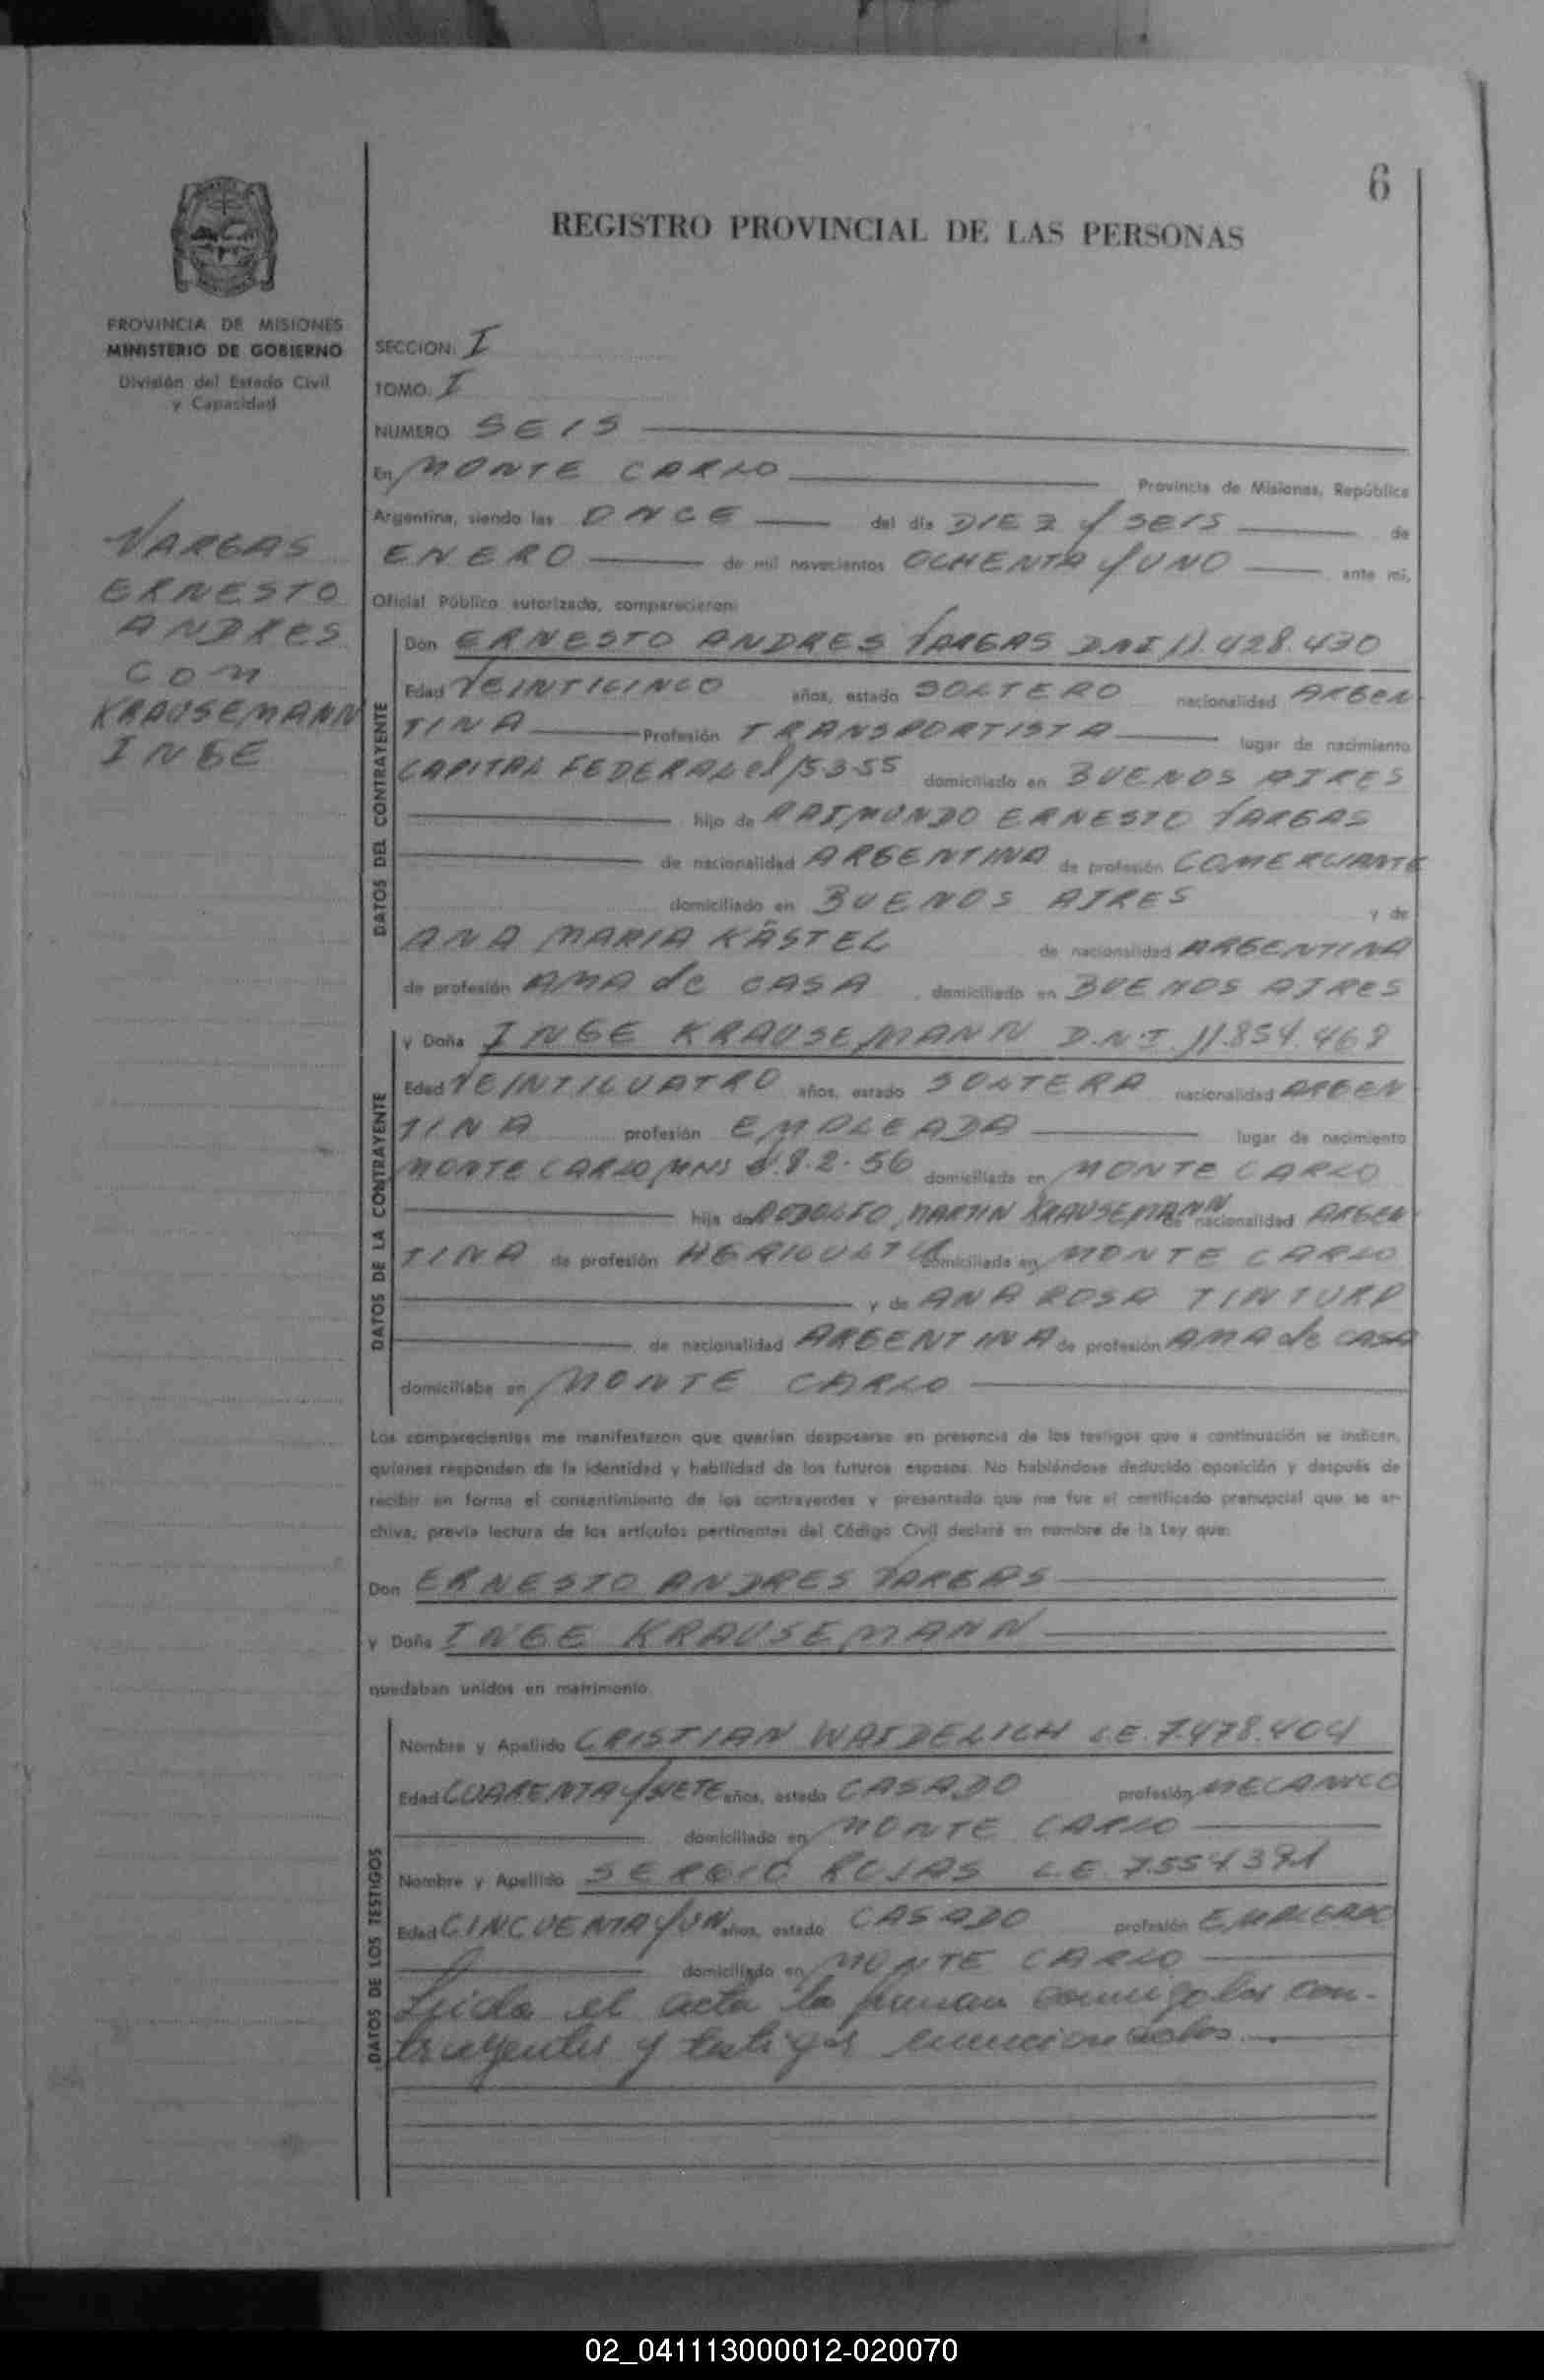 6
REGISTRO PROVINCIAL DE LAS PERSONAS
PROVINCIA DE MISIONES
MINISTERIO DE GOBIERNO
División del Estado Civil
y Capacidad
VARGAS
ERNESTO
ANDRES
CON
KRAUSEMANN
INGE
SECCION: I
TOMO: I
NUMERO SEIS
En MONTE CARLO Provincia de Misiones, República
Argentina, siendo las ONCE del día DIEZ Y SEIS de
ENERO de mil novecientos OCHENTA Y UNO ante mí,
Oficial Público autorizado, comparecieron:
DATOS DEL CONTRAYENTE
Don ERNESTO ANDRES VARGAS DNI 11.428.430
Edad VEINTICINCO años, estado SOLTERO nacionalidad ARGEN
TINA Profesión TRANSPORTISTA lugar de nacimiento
CAPITAL FEDERAL el 15-3-55 domiciliado en BUENOS AIRES
hijo de RAIMUNDO ERNESTO VARGAS
de nacionalidad ARGENTINA de profesión COMERCIANTE
domiciliado en BUENOS AIRES y de
ANA MARIA KÄSTEL de nacionalidad ARGENTINA
de profesión AMA de CASA domiciliado en BUENOS AIRES
DATOS DE LA CONTRAYENTE
y Doña INGE KRAUSEMANN D.N.I. 11.854.468
Edad VEINTICUATRO años, estado SOLTERA nacionalidad ARGEN
TINA profesión EMPLEADA lugar de nacimiento
MONTE CARLO, MNS el 8.2.56 domiciliada en MONTE CARLO
hija de RODOLFO MARTIN KRAUSEMANN de nacionalidad ARGEN
TINA de profesión AGRICULTUR domiciliado en MONTE CARLO
y de ANA ROSA
de nacionalidad ARGENTINA de profesión AMA de CASA
domiciliaba en MONTE CARLO
Los comparecientes me manifestaron que querían desposarse en presencia de los testigos que a continuación se indican,
quienes responden de la identidad y habilidad de los futuros esposos. No habiéndose deducido oposición y después de
recibir en forma el consentimiento de los contrayentes y presentado que me fue el certificado prenupcial que se ar-
chiva, previa lectura de los artículos pertinentes del Código Civil declaré en nombre de la Ley que:
Don ERNESTO ANDRES VARGAS
y Doña INGE KRAUSEMANN
quedaban unidos en matrimonio.
DATOS DE LOS TESTIGOS
Nombre y Apellido CRISTIAN WAIDELICH L.E. 7.478.404
Edad CUARENTA Y SIETE años, estado CASADO profesión MECANICO
domiciliado en MONTE CARLO
Nombre y Apellido SERGIO ROJAS L.E. 7.554.391
Edad CINCUENTA Y UN años, estado CASADO profesión EMPLEADO
domiciliado en MONTE CARLO
Leida el acta la firman conmigo los con-
trayentes y testigos mencionados.
02_041113000012-020070